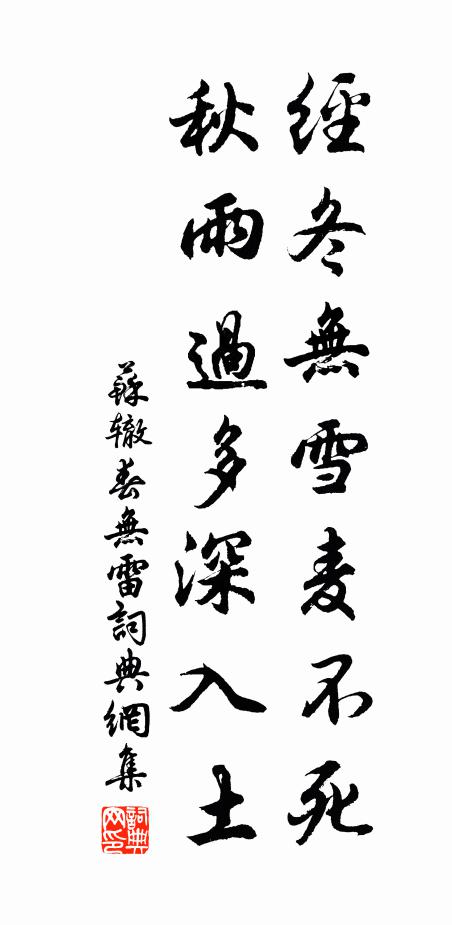 經冬無雪麦不死
秋雨過多深入土
蘇辙春無雷詞典網集
詞典网印